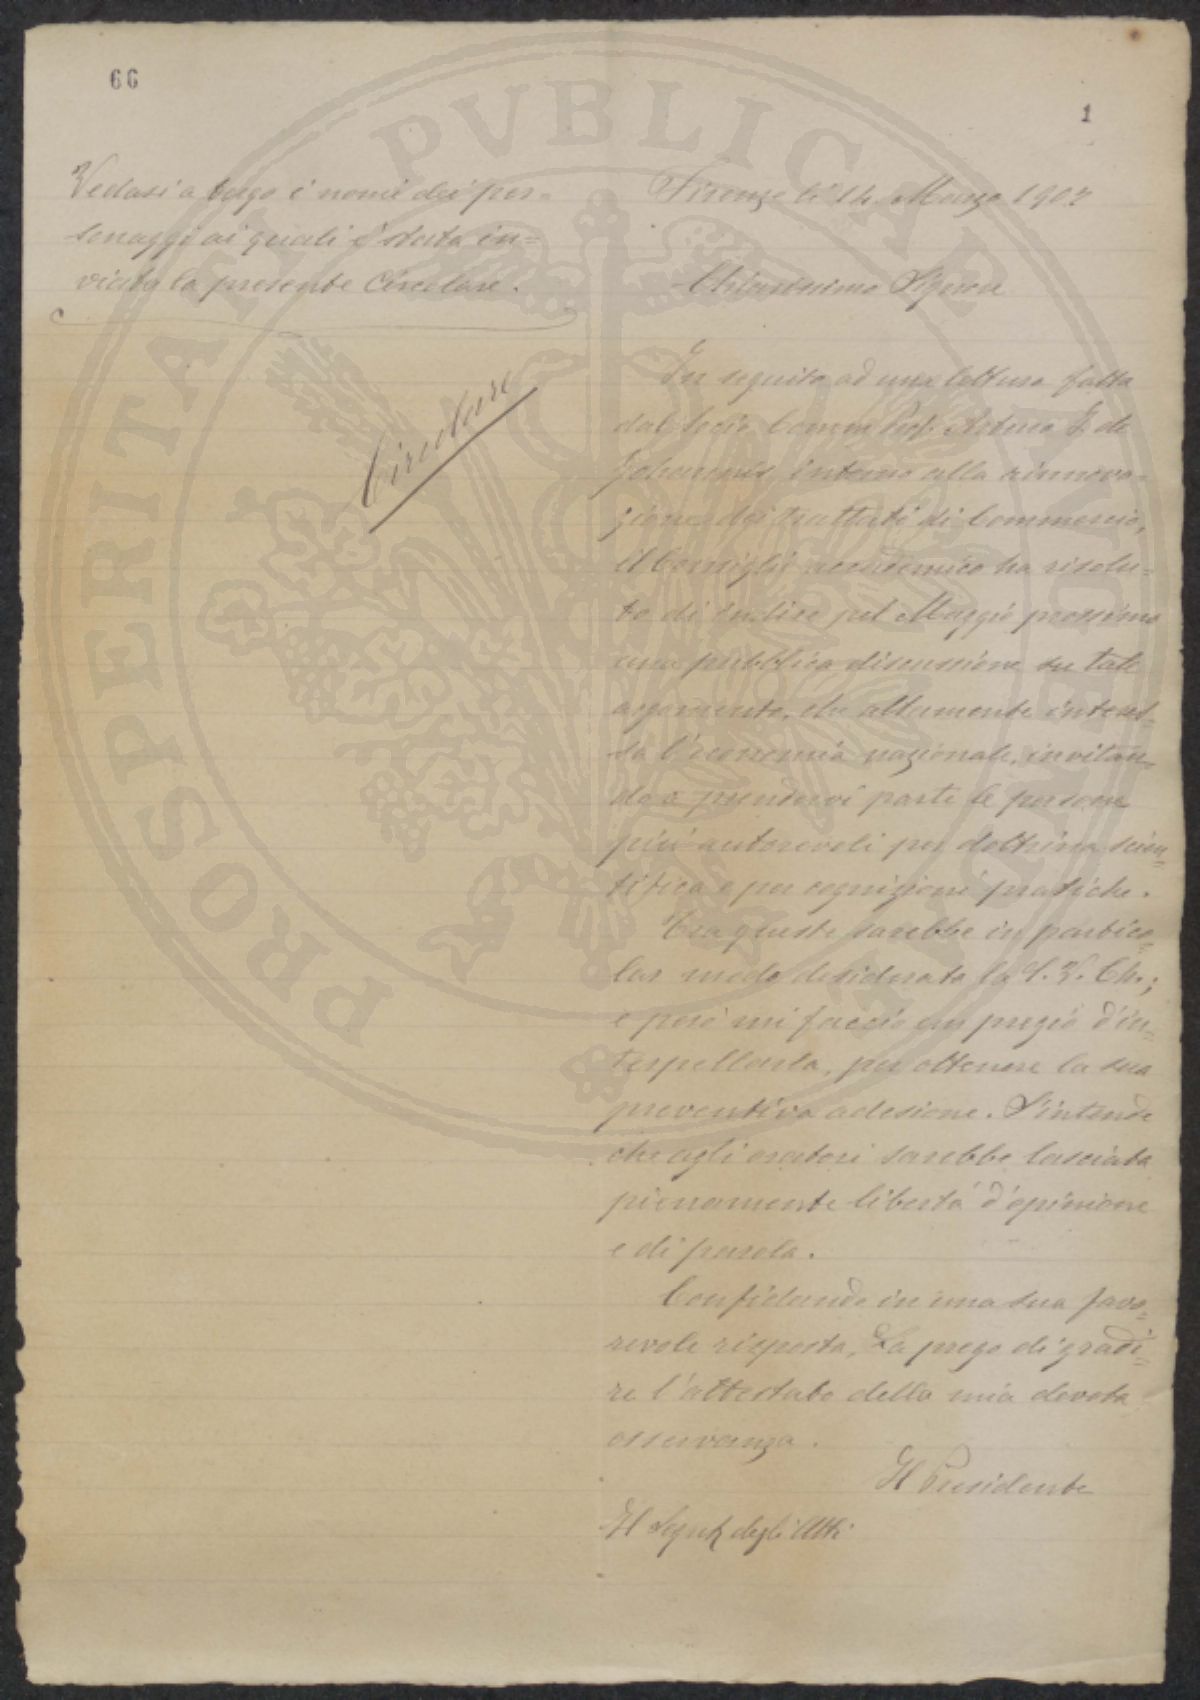 66
1
Vedasi a tergo i nomi dei per=
sonaggi ai quali è stata in=
viata la presente Circolare.
Circolare
Firenze li 14 Marzo 1902
Chiarissimo Signore
In seguito ad una lettura fatta
dal Socio Comm. Prof. Arturo J. de
Johannis intorno alla rinnova=
zione dei trattati di Commercio,
il Consiglio accademico ha risolu=
to di indire pel Maggio prossimo
una pubblica discussione su tale
argomento, che altamente interes=
sa l'economia nazionale, invitan=
do a prendervi parte le persone
più autorevoli per dottrina scien=
tifica e per cognizioni pratiche.
Tra queste sarebbe in partico=
lar modo desiderata la S. V. Ch.;
e però mi faccio un pregio d'in=
terpellarla, per ottenere la sua
preventiva adesione. S'intende
che agli oratori sarebbe lasciata
pienamente libertà d'opinione
e di parola.
Confidando in una sua favo=
revole risposta, La prego di gradi=
re l'attestato della mia devota
osservanza.
Il Presidente
Il Segret. degli Atti
PROSPERITATI PVBLICAE